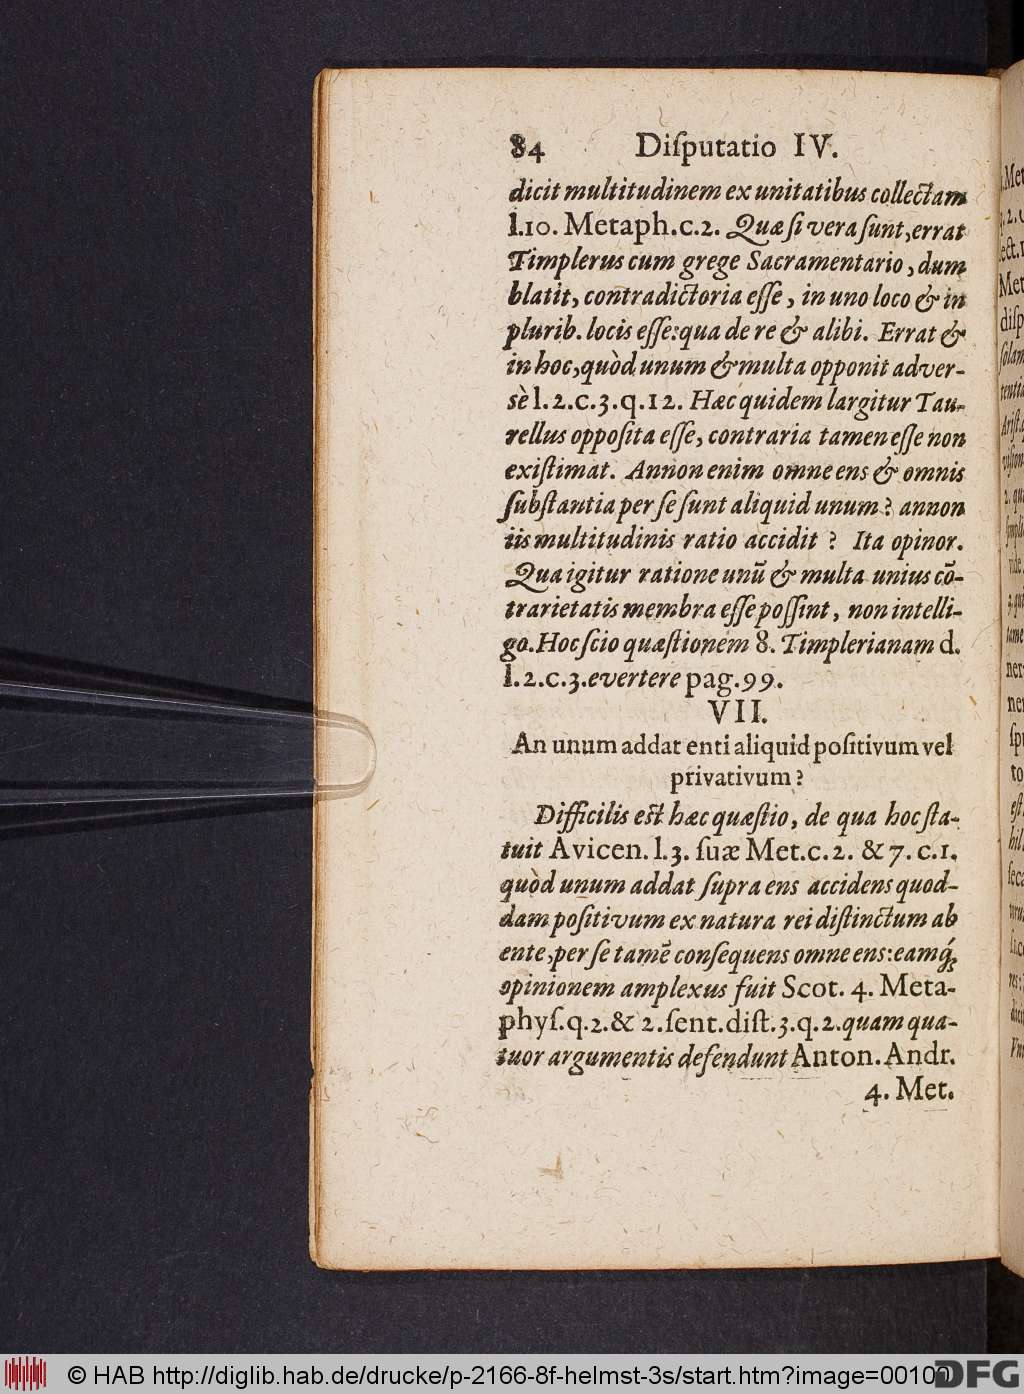 84 Diſputatio IV.
dicit multitudinem ex unitatibus collectam
l.10. Metaph.c.2. Quæ ſi vera ſunt, errat
Timplerus cum grege Sacramentario, dum
blatit, contradictoria eſſe, in uno loco & in
plurib. locis eſſe: qua de re & alibi. Errat &
in hoc, quòd unum & multa opponit adver-
sè l.2.c.3.q.12. Hæc quidem largitur Tau-
rellus oppoſita eſſe, contraria tamen eſſe non
exiſtimat. Annon enim omne ens & omnis
ſubſtantia per ſe ſunt aliquid unum? annon
iis multitudinis ratio accidit? Ita opinor.
Qua igitur ratione unū & multa unius cō-
trarietatis membra eſſe poſſint, non intelli-
go. Hoc ſcio quæſtionem 8. Timplerianam d.
l.2.c.3. evertere pag.99.
VII.
An unum addat enti aliquid poſitivum vel
privativum?
Difficilis est hæc quæſtio, de qua hoc ſta-
tuit Avicen. l.3. ſuæ Met.c.2. & 7. c.1.
quòd unum addat ſupra ens accidens quod-
dam poſitivum ex natura rei diſtinctum ab
ente, per ſe tamē conſequens omne ens: eamq́;
opinionem amplexus fuit Scot. 4. Meta-
phyſ.q.2.& 2.ſent.diſt.3.q.2. quam qua-
tuor argumentis defendunt Anton. Andr.
4. Met.
© HAB http://diglib.hab.de/drucke/p-2166-8f-helmst-3s/start.htm?image=00100
DFG